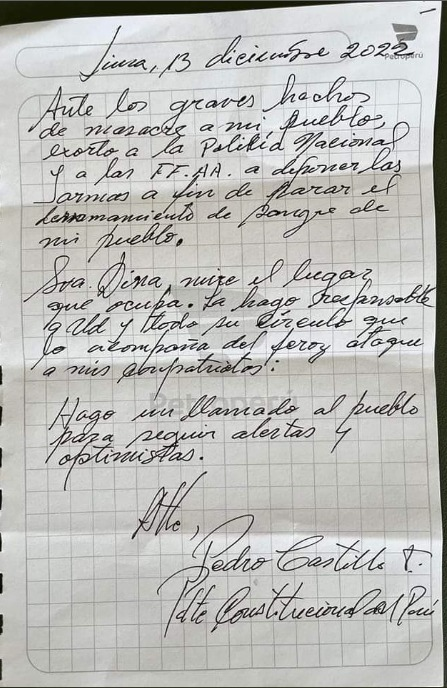 Petroperú
Lima, 13 diciembre 2022
Ante los graves hechos
de masacre a mi pueblo,
exorto a la Policía Nacional
y a las FF.AA. a deponer las
armas a fin de parar el
derramamiento de sangre de
mi pueblo.
Sra. Dina, mire el lugar
que ocupa. La hago responsable
a Ud y todo su círculo que
lo acompaña del feroz ataque
a mis compatriotas.
Petroperú
Hago un llamado al pueblo
para seguir alertas y
optimistas.
Atte,
Pedro Castillo T.
Pdte Constitucional del Perú